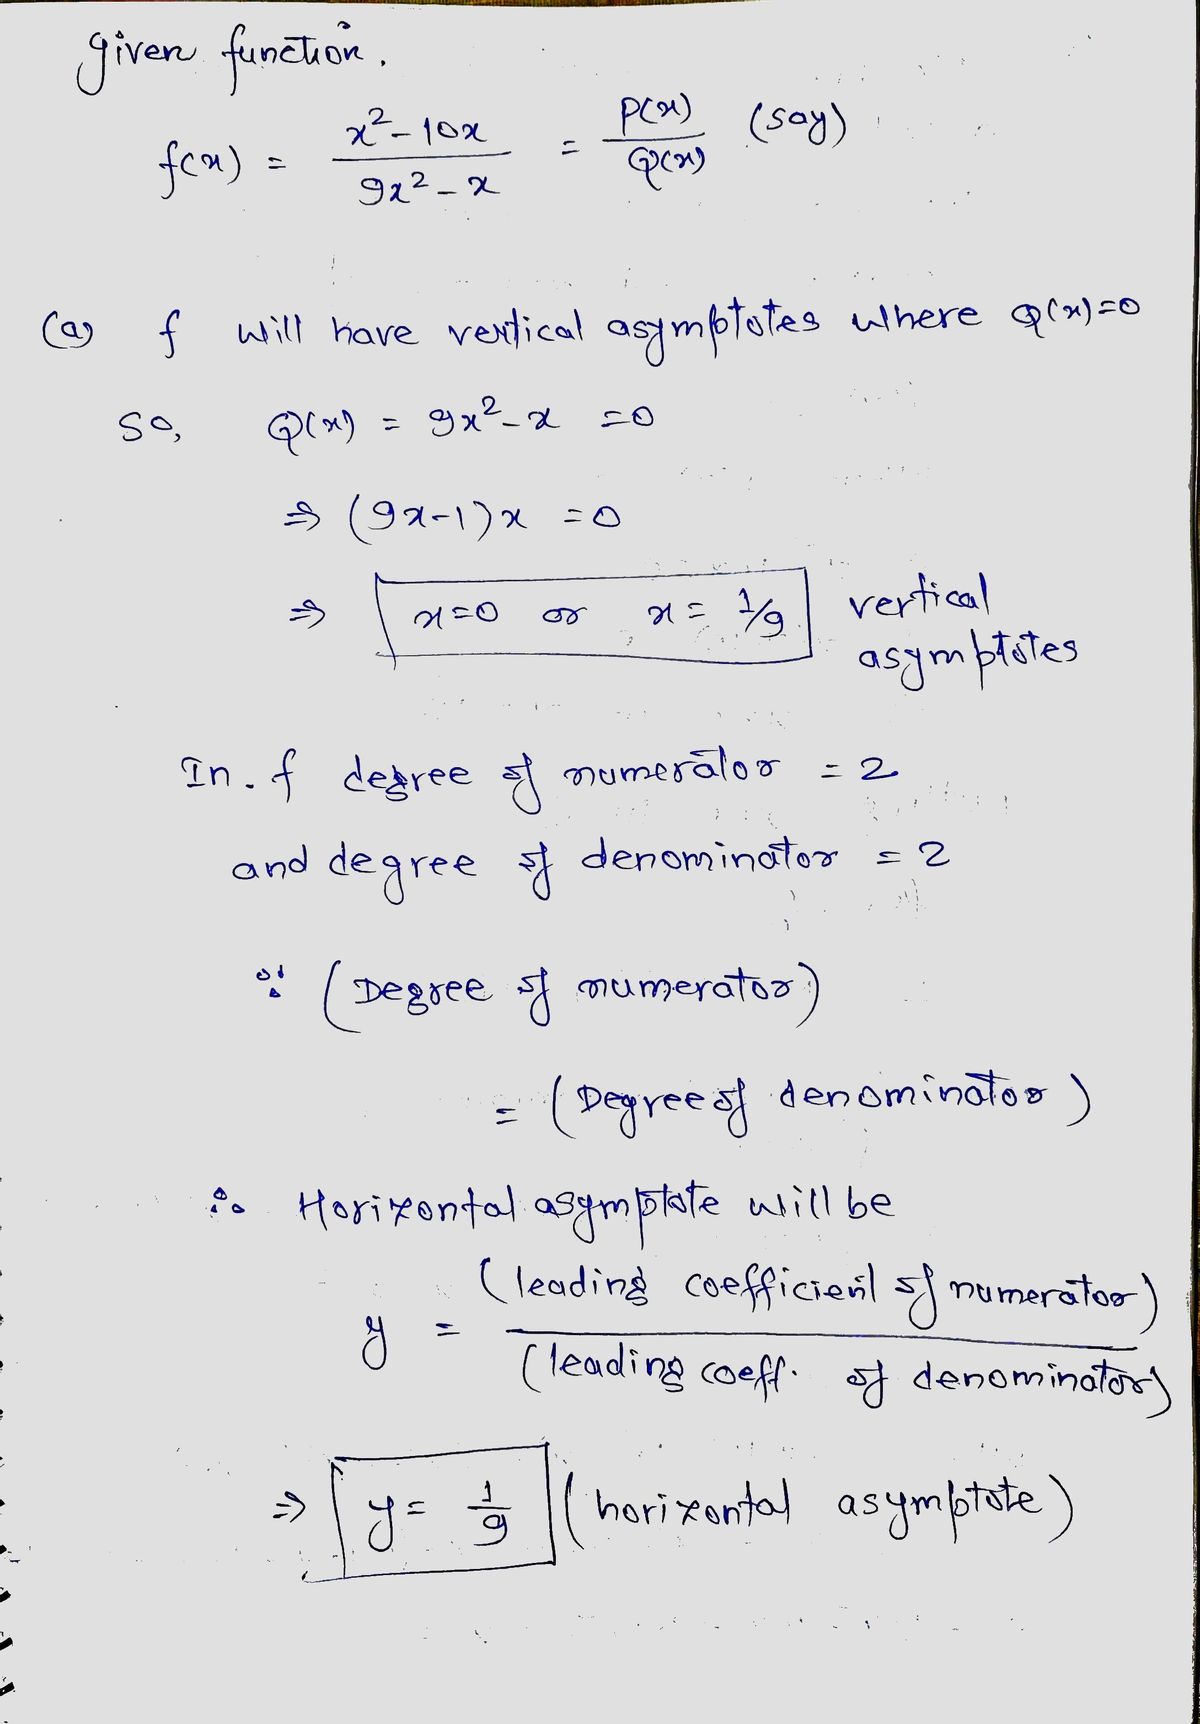 given function.
f(x) = x² - 10x / 9x² - x = P(x) / Q(x) (say)
(a) f will have vertical asymptotes where Q(x)=0
so, Q(x) = 9x² - x = 0
⇒ (9x-1)x = 0
⇒ x=0 or x = 1/9 vertical
asymptotes
In. f degree of numerator = 2
and degree of denominator = 2
∵ (Degree of numerator)
= (Degree of denominator)
∴ Horizontal asymptote will be
y = (leading coefficient of numerator) / (leading coeff. of denominator)
⇒ y = 1/9 (horizontal asymptote)